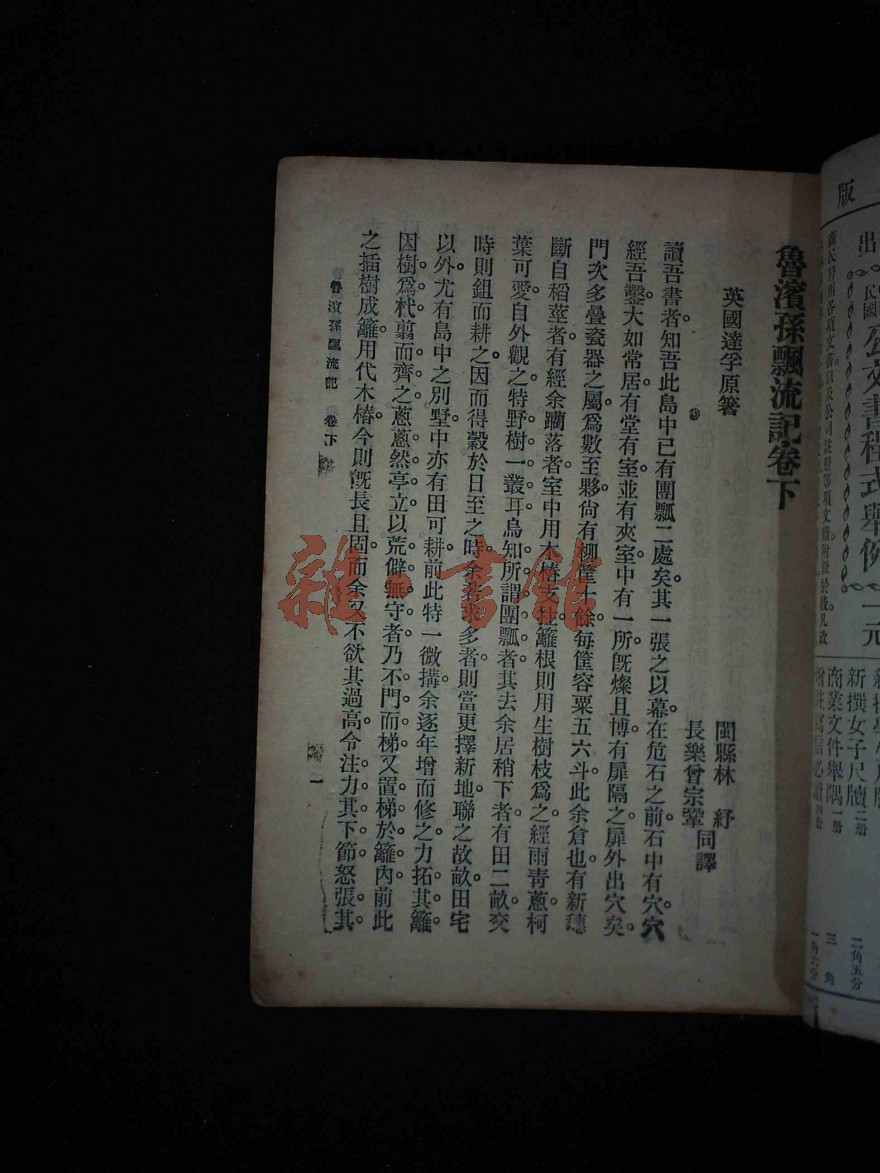 魯濱孫飄流記卷下
英國達孚原著
閩縣林紓
長樂曾宗鞏
同譯
讀吾書者。知吾此島中已有團瓢二處矣。其一張之以幕。在危石之前。石中有穴。穴
經吾鑿大如常居。有堂有室。並有夾室。中有一所。旣燦且博。有扉隔之。扉外出穴矣。
門次多疊瓷器之屬。爲數至夥。尙有柳筐十餘。每筐容粟五六斗。此余倉也。有新穗
斷自稻莖者。有經余躪落者。室中用木樁支拄。籬根則用生樹枝爲之。經雨靑蔥。柯
葉可愛。自外觀之。特野樹一叢耳。烏知所謂團瓢者。其去余居稍下者。有田二畝。交
時則鉏而耕之。因而得穀於日至之時。余若求多者。則當更擇新地聯之。故畝田宅
以外。尤有島中之別墅。中亦有田可耕。前此特一微搆。余逐年增而修之。力拓其籬。
因樹爲杙。翦而齊之。蔥蔥然亭立。以荒僻無守者。乃不門而梯。又置梯於籬內。前此
之插樹成籬。用代木樁。今則旣長且固。而余又不欲其過高。令注力其下節。怒張其
魯濱孫飄流記 卷下
一
版
出
民國公文書程式舉例
二元
新撰女子尺牘
二册
二角五分
商業文件舉隅
一册
三角
一角六分
雜·書館